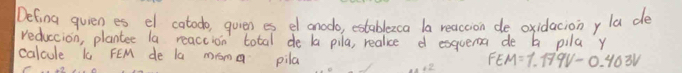 Defina quien es el catodo, quien es el anodo, establezca la reaccion de oxidación y la de
reducción, plantee la reacción total de la pila, realice el esquema de la pila y
calcule la FEM de la misma pila FEM=1.179V-0.403V